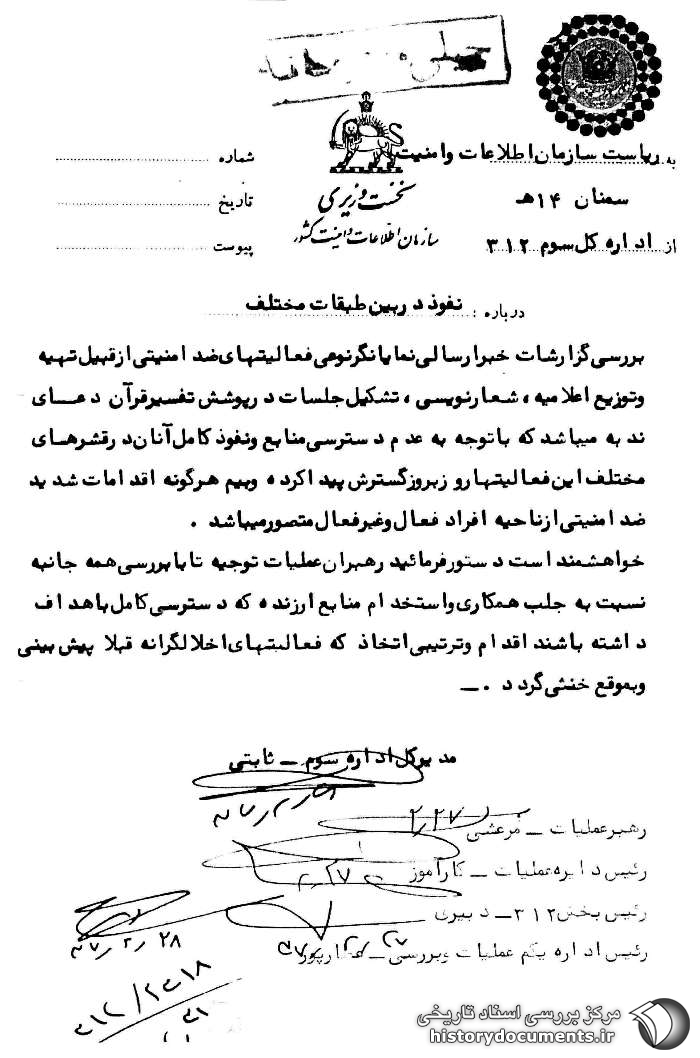 به ریاست سازمان اطلاعات وامنیت
سمنان ۱۴هـ
از اداره کل سوم ۳۱۲
نخست وزیری
سازمان اطلاعات و امنیت کشور
شماره
تاریخ
پیوست
درباره : نفوذ دربین طبقات مختلف
بررسی گزارشات خبر ارسالی نمایانگر نوعی فعالیتهای ضد امنیتی از قبیل تهیه
وتوزیع اعلامیه ، شعارنویسی ، تشکیل جلسات درپوشش تفسیر قرآن دعای
ندبه میباشد که باتوجه به عدم دسترسی منابع ونفوذ کامل آنان در قشرهای
مختلف این فعالیتها روزبروز گسترش پیدا کرده وبیم هرگونه اقدامات شدید
ضد امنیتی از ناحیه افراد فعال وغیرفعال متصور میباشد .
خواهشمند است دستور فرمائید رهبران عملیات توجیه تا با بررسی همه جانبه
نسبت به جلب همکاری واستخدام منابع ارزنده که دسترسی کامل باهداف
داشته باشند اقدام وترتیبی اتخاذ که فعالیتهای اخلالگرانه قبلا پیش بینی
وبموقع خنثی گردد .ــ
مدیرکل اداره سوم ــ ثابتی
رهبر عملیات ــ مرعشی ۲/۲۷
رئیس دایره عملیات ــ کارآموز
رئیس بخش ۳۱۲ ــ دبیری
رئیس اداره یکم عملیات وبررسی ــ عطارپور
مرکز بررسی اسناد تاریخی
historydocuments.ir